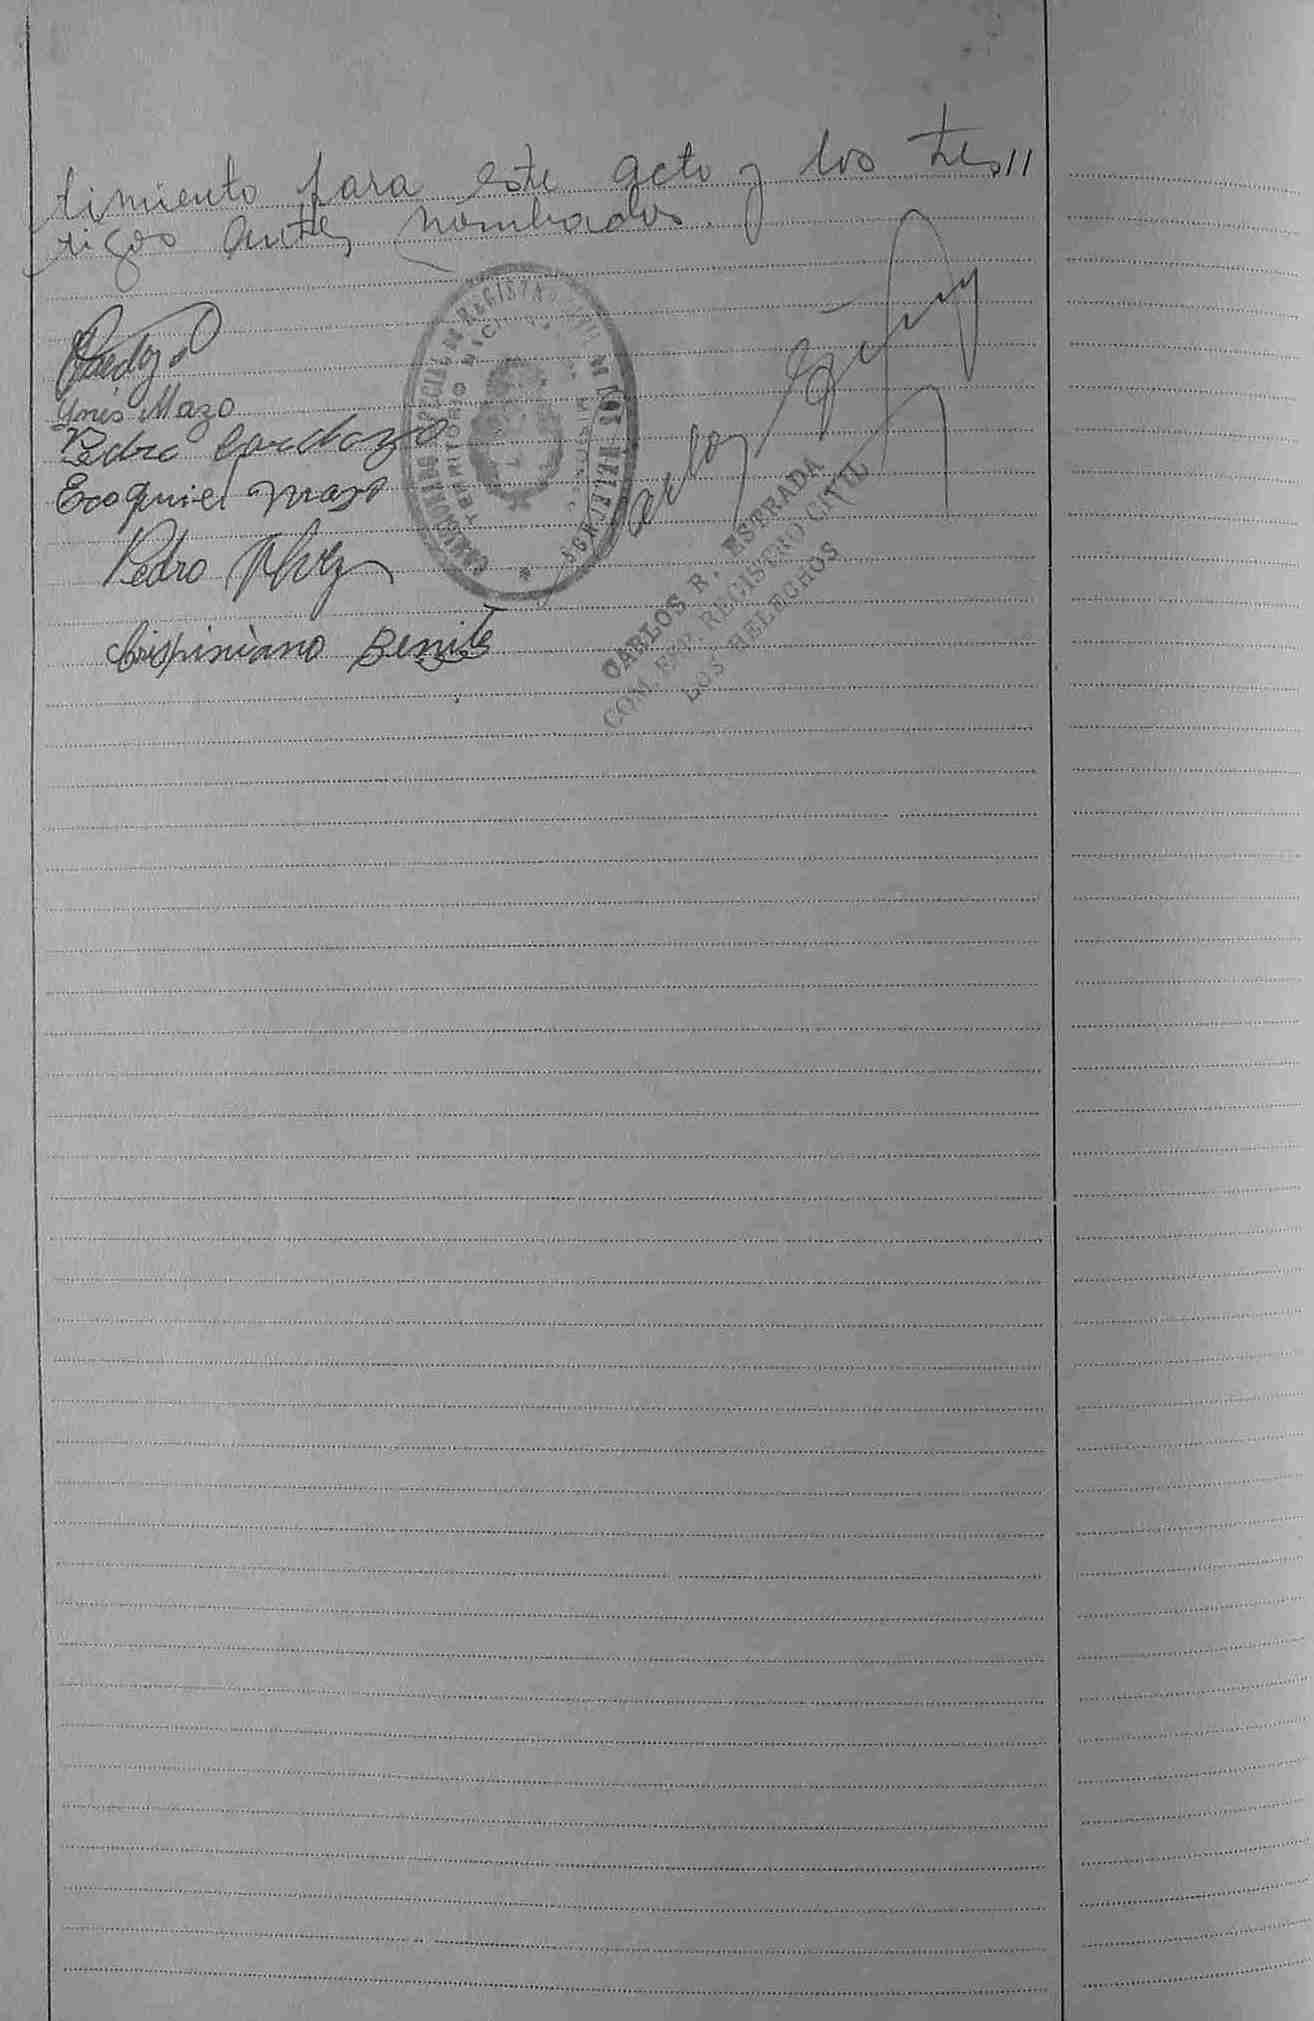 timiento para este acto y los tes//
tigos antes nombrados.
Cardozo
Ynés Mazo
Pedro Cardozo
Exequiel Mazo
Pedro
Crispiniano Benite
COMISIONADO ESPECIAL DE REGISTRO CIVIL DE LOS HELECHOS
TERRITORIO NACIONAL DE MISIONES
Carlos Estrada
CARLOS R. ESTRADA
COM. ESP. REGISTRO CIVIL
LOS HELECHOS